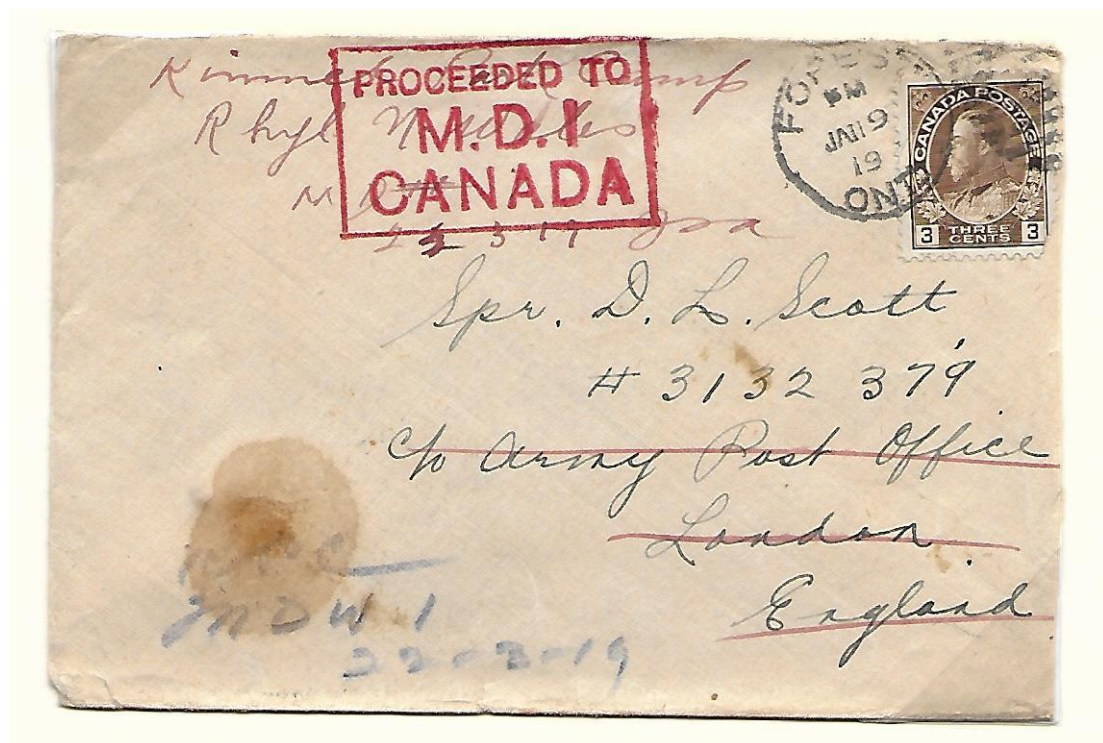 Kinmel Park Camp
Rhyl N. Wales
PROCEEDED TO
M.D.I
CANADA
3 19
FOREST
PM
JAN 9
19
ONT
CANADA POSTAGE
3 THREE CENTS 3
Spr. D. L. Scott
# 3132 379
c/o Army Post Office
London
England
M D W 1
22-2-19